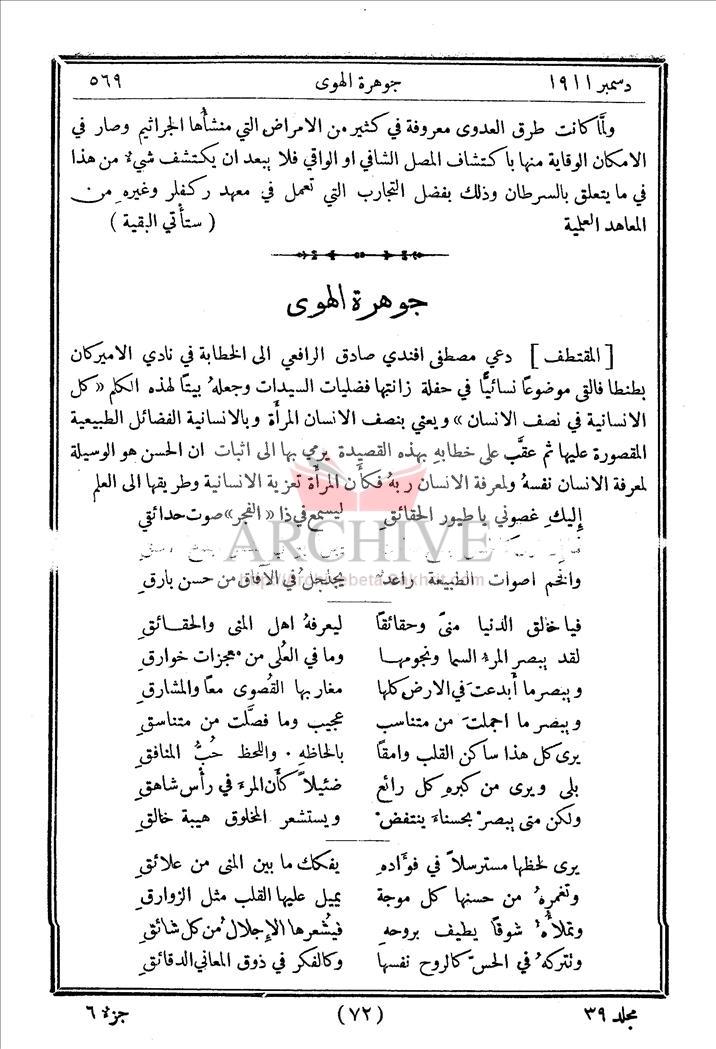 دسمبر ١٩١١ جوهرة الهوى ٥٦٩
ولما كانت طرق العدوى معروفة في كثير من الامراض التي منشأُها الجراثيم وصار في
الامكان الوقاية منها باكتشاف المصل الشافي او الواقي فلا يبعد ان يكتشف شيءٌ من هذا
في ما يتعلق بالسرطان وذلك بفضل التجارب التي تعمل في معهد ركفلر وغيره من
المعاهد العلمية ( ستأتي البقية )
جوهرة الهوى
[ المقتطف ] دعي مصطفى افندي صادق الرافعي الى الخطابة في نادي الاميركان
بطنطا فالقى موضوعًا نسائيًّا في حفلة زانتها فضليات السيدات وجعلهُ بيتًا لهذه الكلم «كل
الانسانية في نصف الانسان» ويعني بنصف الانسان المرأة وبالانسانية الفضائل الطبيعية
المقصورة عليها ثم عقَّب على خطابهِ بهذه القصيدة يرمي بها الى اثبات ان الحسن هو الوسيلة
لمعرفة الانسان نفسهُ ولمعرفة الانسان ربهُ فكأن المرأة تعزية الانسانية وطريقها الى العلم
إليكِ غصوني يا طيور الحقائقِ ليسمع في ذا «الفجر» صوت حدائقي
ARCHIVE
وافخم اصوات الطبيعة راعدٌ يجلجلُ في الآفاق من حسن بارقِ
فيا خالق الدنيا منىً وحقائقًا ليعرفهُ اهل المنى والحقائقِ
لقد يبصر المرءُ السما ونجومها وما في العُلى من معجزات خوارقِ
ويبصر ما أبدعت في الارض كلها مغاربها القُصوى معًا والمشارقِ
ويبصر ما اجملتَ من متناسب عجيب وما فصَّلت من متناسقِ
يرى كل هذا ساكن القلب وامقًا بالحاظهِ . واللحظ حُبُّ المنافقِ
بلى ويرى من كبرهِ كل رائع ضئيلاً كأن المرءَ في رأس شاهقِ
ولكن متى يبصرْ بحسناءَ ينتفضْ ويستشعر المخلوق هيبة خالقِ
يرى لحظها مسترسلاً في فوَّادهِ يفكك ما بين المنى من علائقِ
وتغمرهُ من حسنها كل موجة يميل عليها القلب مثل الزوارقِ
وتملأُهُ شوقًا يطيف بروحهِ فيُشعرها الإِجلالُ من كل شائقِ
وتتركهُ في الحسّ كالروح نفسها وكالفكر في ذوق المعاني الدقائقِ
مجلد ٣٩ (٧٢) جزءٌ ٦